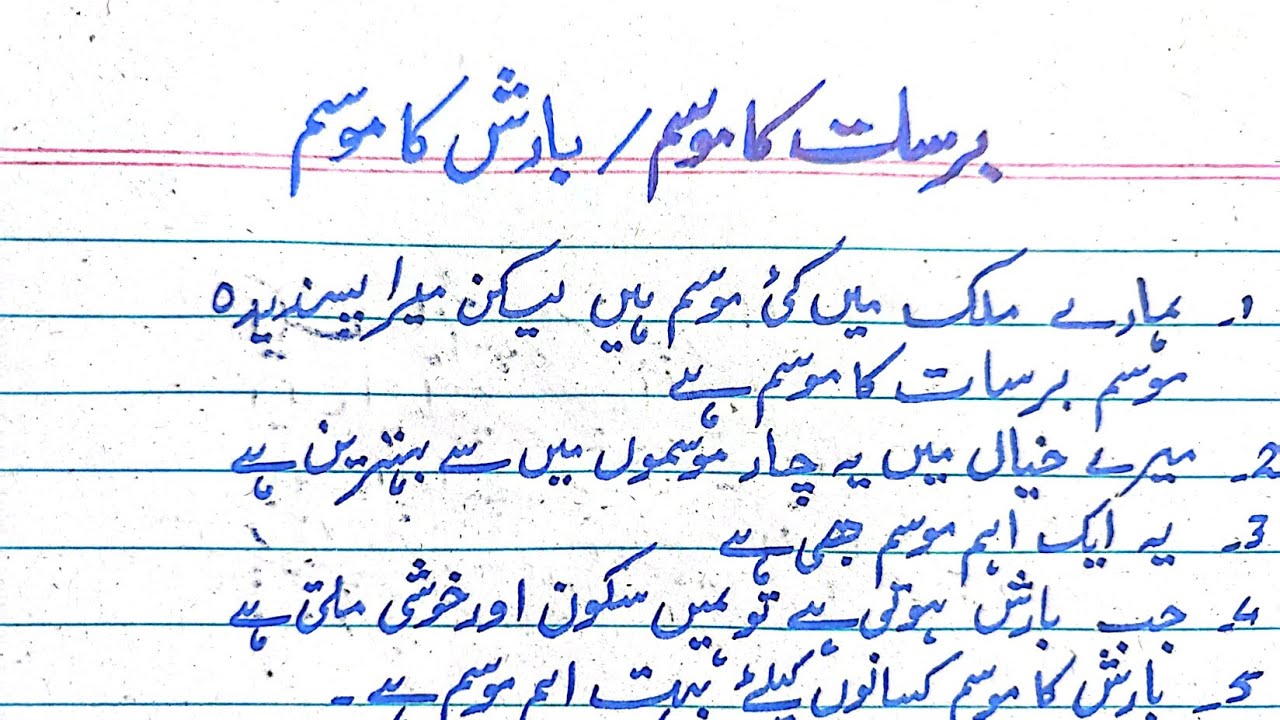 برسات کا موسم / بارش کا موسم
1۔ ہمارے ملک میں کئ موسم ہیں لیکن میرا پسندیدہ
موسم برسات کا موسم ہے
2۔ میرے خیال میں یہ چار موسموں میں سے بہترین ہے
3۔ یہ ایک اہم موسم بھی ہے
4۔ جب بارش ہوتی ہے تو ہمیں سکون اور خوشی ملتی ہے
5۔ بارش کا موسم کسانوں کیلئے بہت اہم موسم ہے۔